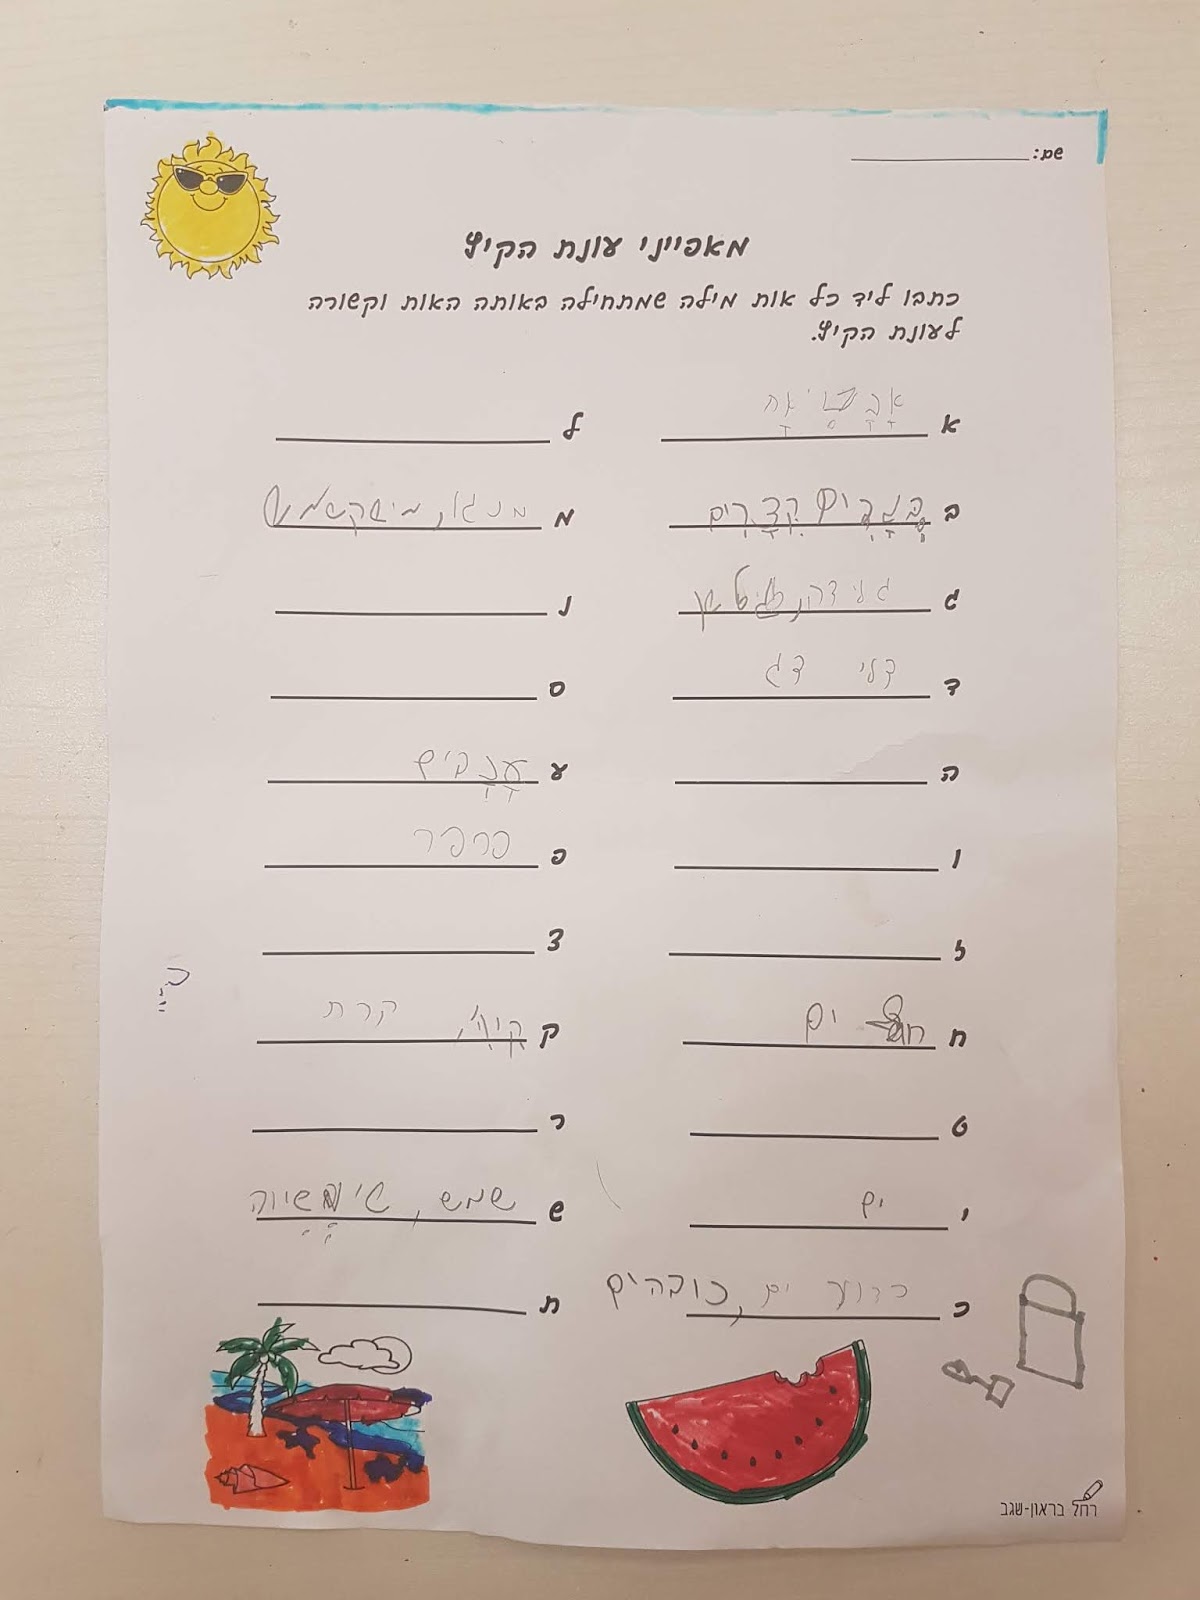 שם:
מאפייני עונת הקיץ
כתבו ליד כל אות מילה שמתחילה באותה האות וקשורה
לעונת הקיץ.
א אבטיח
ב בגדים קצרים
ג גלידה,
ד דלי דג
ה
ו
ז
ח ים
ט
י ים
כ כדור ים, כובהים
ל
מ מנגו,
נ
ס
ע ענבים
פ פרפר
צ
ק קיץ, קרח
ר
ש שמש,
ת
רחל בראון-שגב